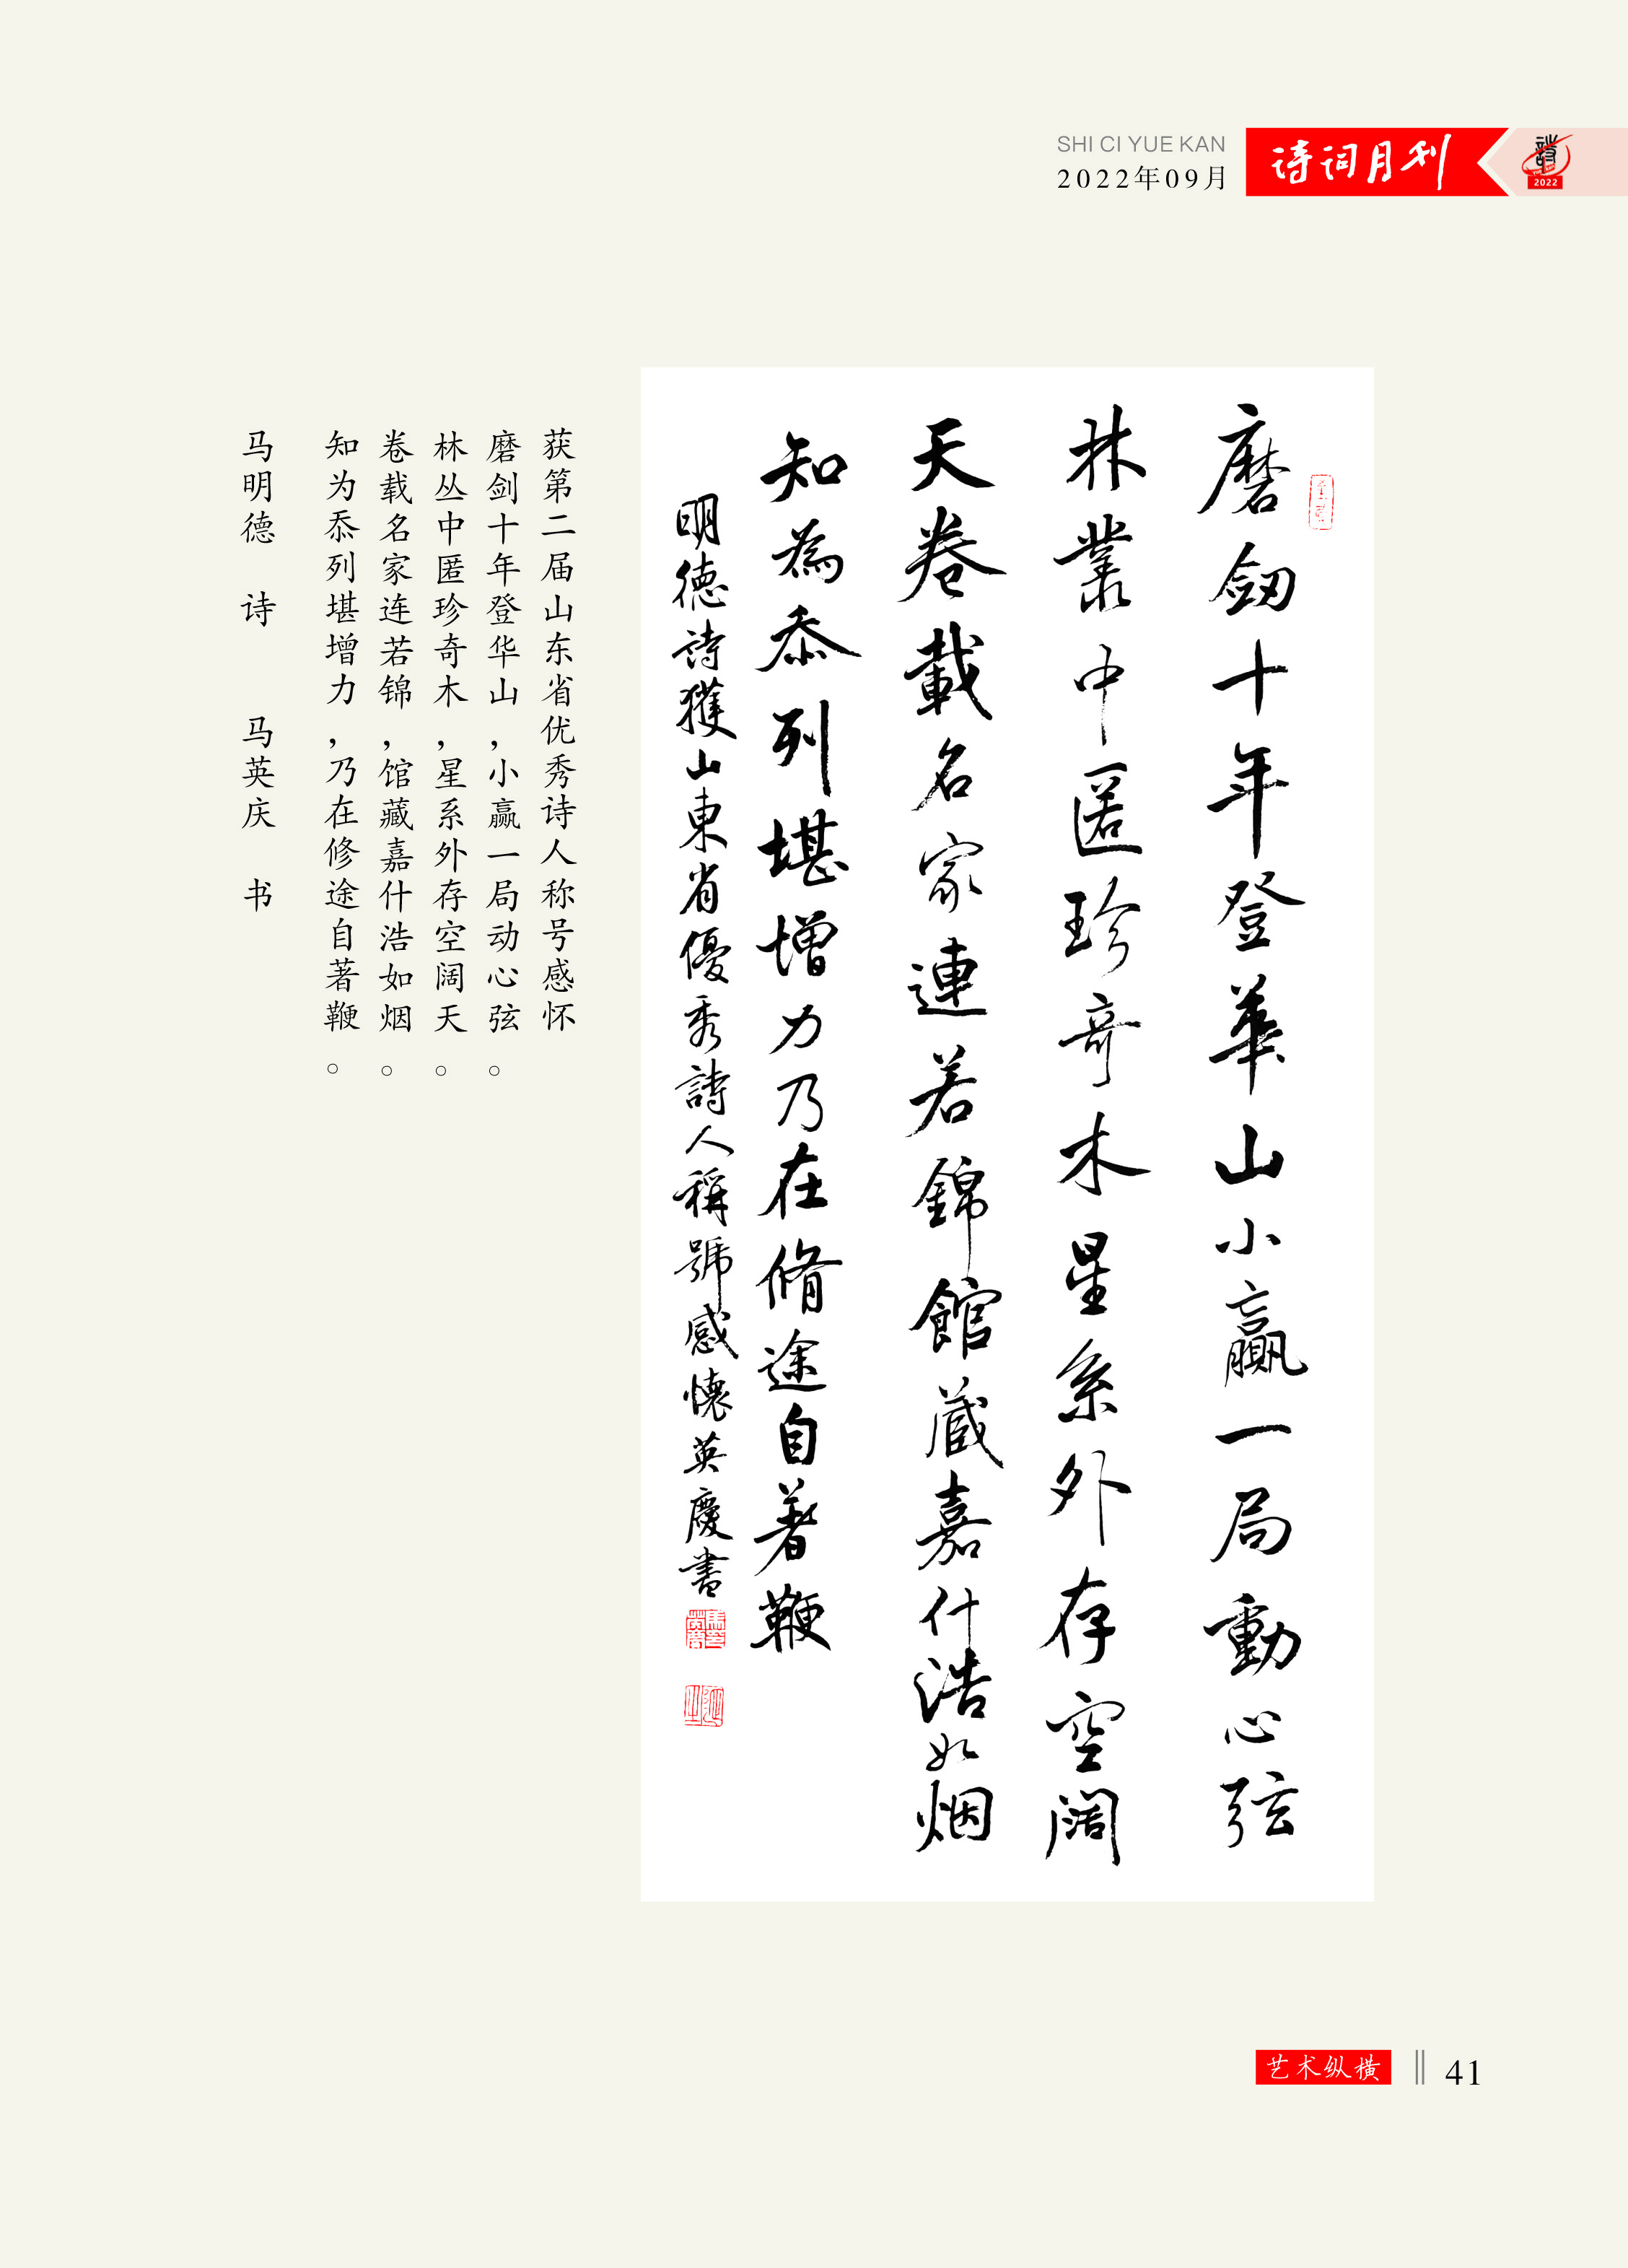 SHI CI YUE KAN
2022年09月
诗词月刊
2022
磨劒十年登華山小贏一局動心弦
林叢中匿珍奇木星系外存空闊
天卷載名家連若錦館蔵嘉什浩如烟
知為忝列堪增力乃在脩途自著鞭
明德詩獲山東省優秀詩人稱號感懷英慶書
获第二届山东省优秀诗人称号感怀
磨剑十年登华山,小赢一局动心弦。
林丛中匿珍奇木,星系外存空阔天。
卷载名家连若锦,馆藏嘉什浩如烟。
知为忝列堪增力,乃在修途自著鞭。
马明德 诗 马英庆 书
艺术纵横
41